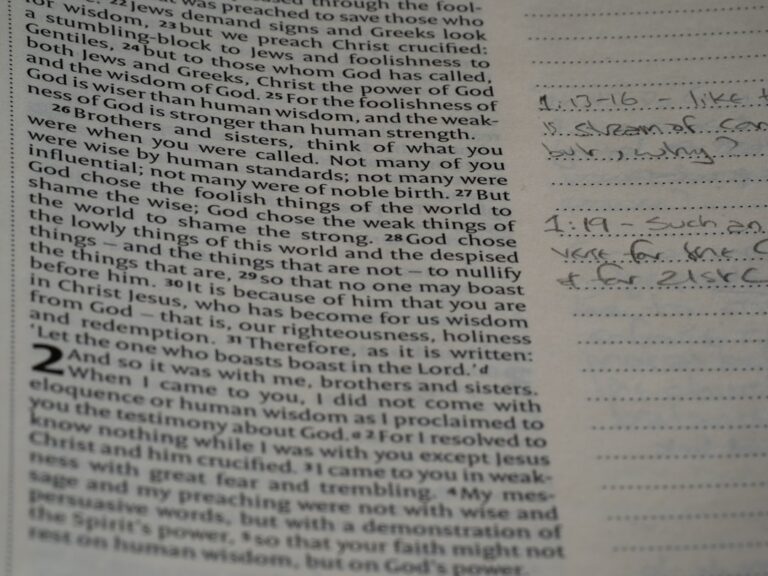 was preached through the fool-
was preached to save those who
22 Jews demand signs and Greeks look
for wisdom, 23 but we preach Christ crucified:
a stumbling-block to Jews and foolishness to
Gentiles, 24 but to those whom God has called,
both Jews and Greeks, Christ the power of God
and the wisdom of God. 25 For the foolishness of
God is wiser than human wisdom, and the weak-
ness of God is stronger than human strength.
26 Brothers and sisters, think of what you
were when you were called. Not many of you
were wise by human standards; not many were
influential; not many were of noble birth. 27 But
God chose the foolish things of the world to
shame the wise; God chose the weak things of
the world to shame the strong. 28 God chose
the lowly things of this world and the despised
things – and the things that are not – to nullify
the things that are, 29 so that no one may boast
before him. 30 It is because of him that you are
in Christ Jesus, who has become for us wisdom
from God – that is, our righteousness, holiness
and redemption. 31 Therefore, as it is written:
'Let the one who boasts boast in the Lord.' d
2 And so it was with me, brothers and sisters.
When I came to you, I did not come with
eloquence or human wisdom as I proclaimed to
you the testimony about God. a 2 For I resolved to
know nothing while I was with you except Jesus
Christ and him crucified. 3 I came to you in weak-
ness with great fear and trembling. 4 My mes-
sage and my preaching were not with wise and
persuasive words, but with a demonstration of
the Spirit's power, 5 so that your faith might not
rest on human wisdom, but on God's power.
1:13-16 - like
is stream of con
but, why?
1:19 - Such an
verse for the
+ for 21st C